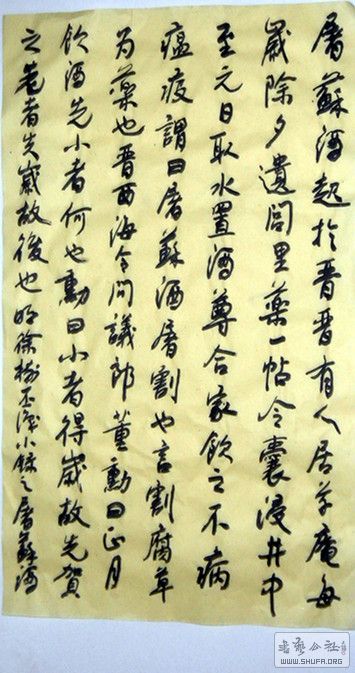 屠蘇酒起於晉晉有人居草庵每
歲除夕遺閭里藥一帖令囊浸井中
至元日取水置酒尊合家飲之不病
瘟疫謂曰屠蘇酒屠割也言割腐草
为藥也晋西海令问議郎董勳曰正月
飲酒先小者何也勳曰小者得歲故先賀
之老者失歲故後也明徐樹丕識小錄之屠蘇酒
書藝公社
WWW.SHUFA.ORG